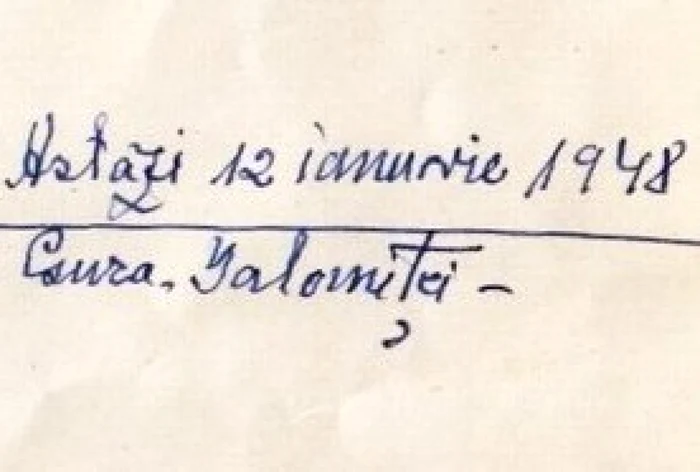 Astăzi 12 ianuarie 1948
Gura-Ialomiței -